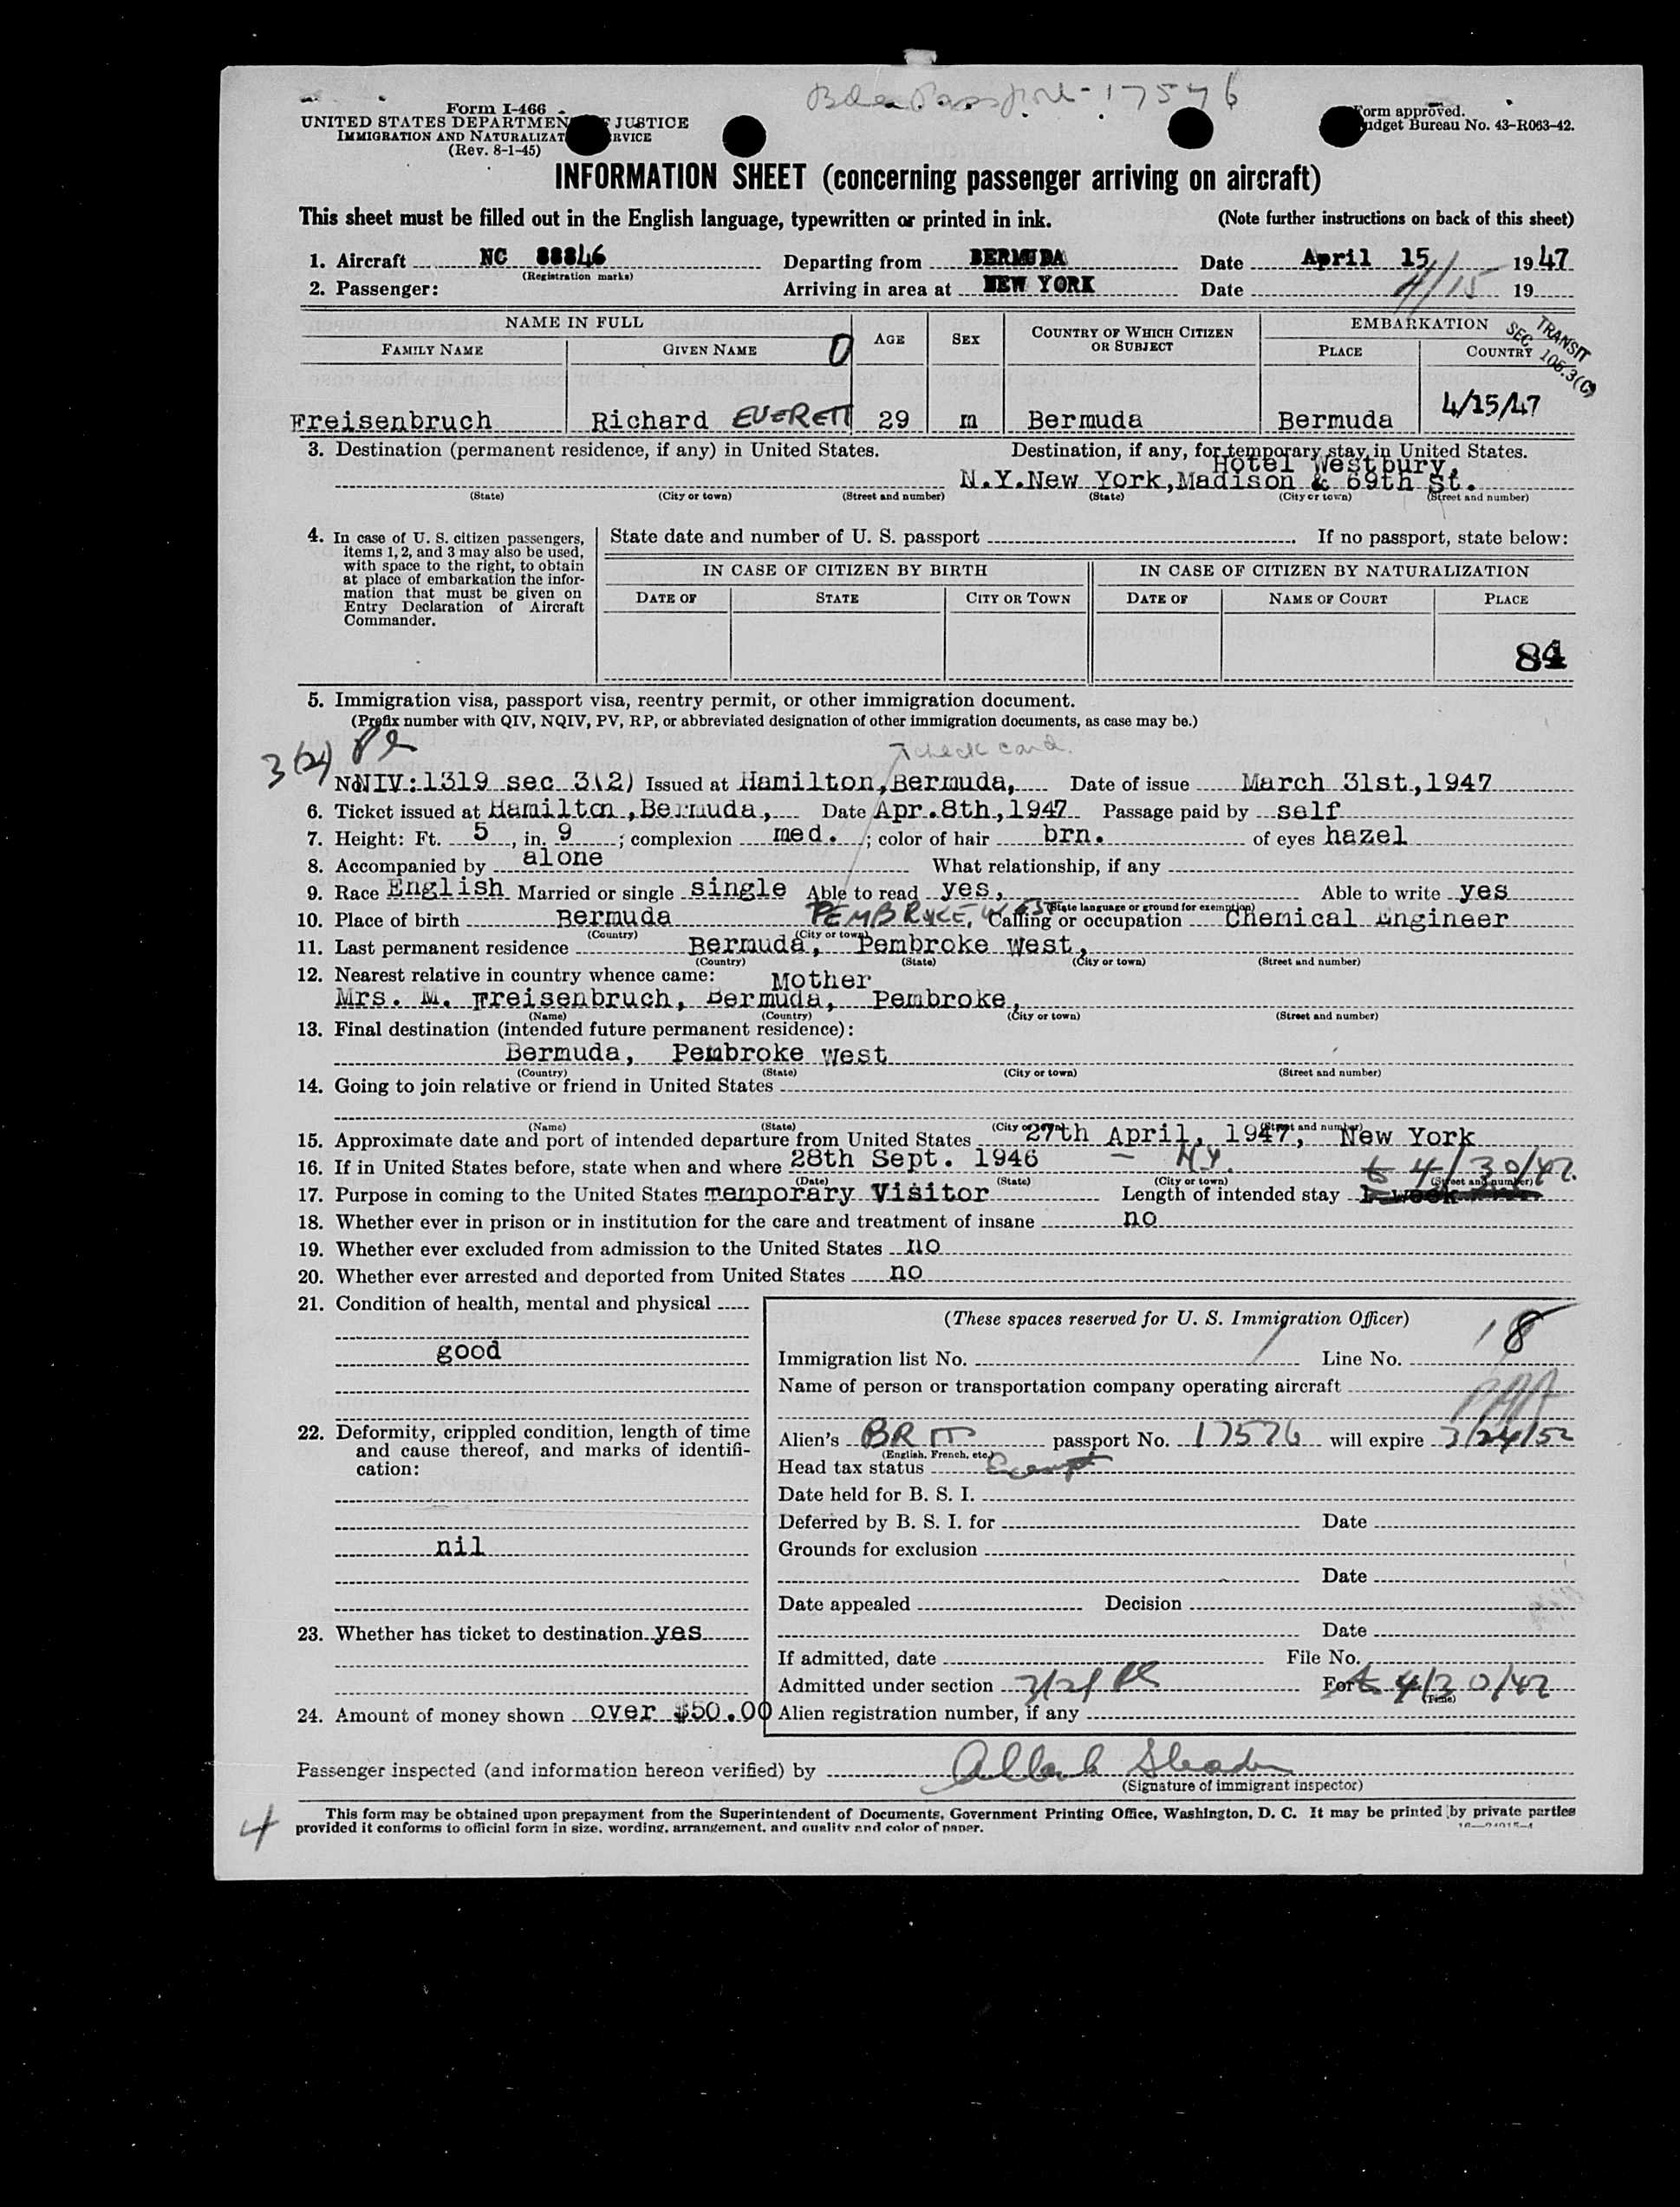 Bda Passport - 17576
Form I-466
UNITED STATES DEPARTMENT OF JUSTICE
IMMIGRATION AND NATURALIZAT RVICE
(Rev. 8-1-45)
Form approved.
udget Bureau No. 43-R063-42.
INFORMATION SHEET (concerning passenger arriving on aircraft)
This sheet must be filled out in the English language, typewritten or printed in ink. (Note further instructions on back of this sheet)
1. Aircraft NC 88846 Departing from BERMUDA Date April 15, 1947
(Registration marks)
2. Passenger: Arriving in area at NEW YORK Date 4/15 19
NAME IN FULL AGE SEX COUNTRY OF WHICH CITIZEN OR SUBJECT EMBARKATION
FAMILY NAME GIVEN NAME 0 PLACE COUNTRY
TRANSIT
SEC. 106.3(C)
4/15/47
Freisenbruch Richard EVERETT 29 m Bermuda Bermuda
3. Destination (permanent residence, if any) in United States. Destination, if any, for temporary stay in United States.
Hotel Westbury,
N.Y.New York,Madison & 69th St.
(State) (City or town) (Street and number) (State) (City or town) (Street and number)
4. In case of U. S. citizen passengers, items 1, 2, and 3 may also be used, with space to the right, to obtain at place of embarkation the information that must be given on Entry Declaration of Aircraft Commander.
State date and number of U. S. passport . If no passport, state below:
IN CASE OF CITIZEN BY BIRTH IN CASE OF CITIZEN BY NATURALIZATION
DATE OF STATE CITY OR TOWN DATE OF NAME OF COURT PLACE
84
5. Immigration visa, passport visa, reentry permit, or other immigration document.
(Prefix number with QIV, NQIV, PV, RP, or abbreviated designation of other immigration documents, as case may be.)
3(2)
check card.
No. NIV:1319 sec 3(2) Issued at Hamilton,Bermuda, Date of issue March 31st.,1947
6. Ticket issued at Hamilton,Bermuda, Date Apr.8th,1947 Passage paid by self
7. Height: Ft. 5, in. 9; complexion med.; color of hair brn. of eyes hazel
8. Accompanied by alone What relationship, if any
9. Race English Married or single single Able to read yes, Able to write yes
(State language or ground for exemption)
10. Place of birth Bermuda PEMBROKE, WEST Calling or occupation Chemical Engineer
(Country) (City or town)
11. Last permanent residence Bermuda, Pembroke West,
(Country) (State) (City or town) (Street and number)
12. Nearest relative in country whence came: Mother
Mrs. M. Freisenbruch, Bermuda, Pembroke,
(Name) (Country) (City or town) (Street and number)
13. Final destination (intended future permanent residence):
Bermuda, Pembroke West
(Country) (State) (City or town) (Street and number)
14. Going to join relative or friend in United States
(Name) (State) (City or town) (Street and number)
15. Approximate date and port of intended departure from United States 27th April, 1947, New York
16. If in United States before, state when and where 28th Sept. 1946 — N.Y.
(Date) (State) (City or town) (Street and number)
to 4/30/47.
17. Purpose in coming to the United States Temporary Visitor Length of intended stay 1 week
18. Whether ever in prison or in institution for the care and treatment of insane no
19. Whether ever excluded from admission to the United States no
20. Whether ever arrested and deported from United States no
21. Condition of health, mental and physical
good
22. Deformity, crippled condition, length of time and cause thereof, and marks of identification:
nil
23. Whether has ticket to destination yes
24. Amount of money shown over $50.00
(These spaces reserved for U. S. Immigration Officer)
Immigration list No. Line No. 8
Name of person or transportation company operating aircraft
PAA
Alien's BRIT passport No. 17576 will expire 3/24/52
(English, French, etc.)
Head tax status Exempt
Date held for B. S. I.
Deferred by B. S. I. for Date
Grounds for exclusion
Date
Date appealed Decision
Date
If admitted, date File No.
Admitted under section 3/2/ For to 4/30/47
(Time)
Alien registration number, if any
Passenger inspected (and information hereon verified) by
(Signature of immigrant inspector)
This form may be obtained upon prepayment from the Superintendent of Documents, Government Printing Office, Washington, D. C. It may be printed by private parties
provided it conforms to official form in size, wording, arrangement, and quality and color of paper.
4